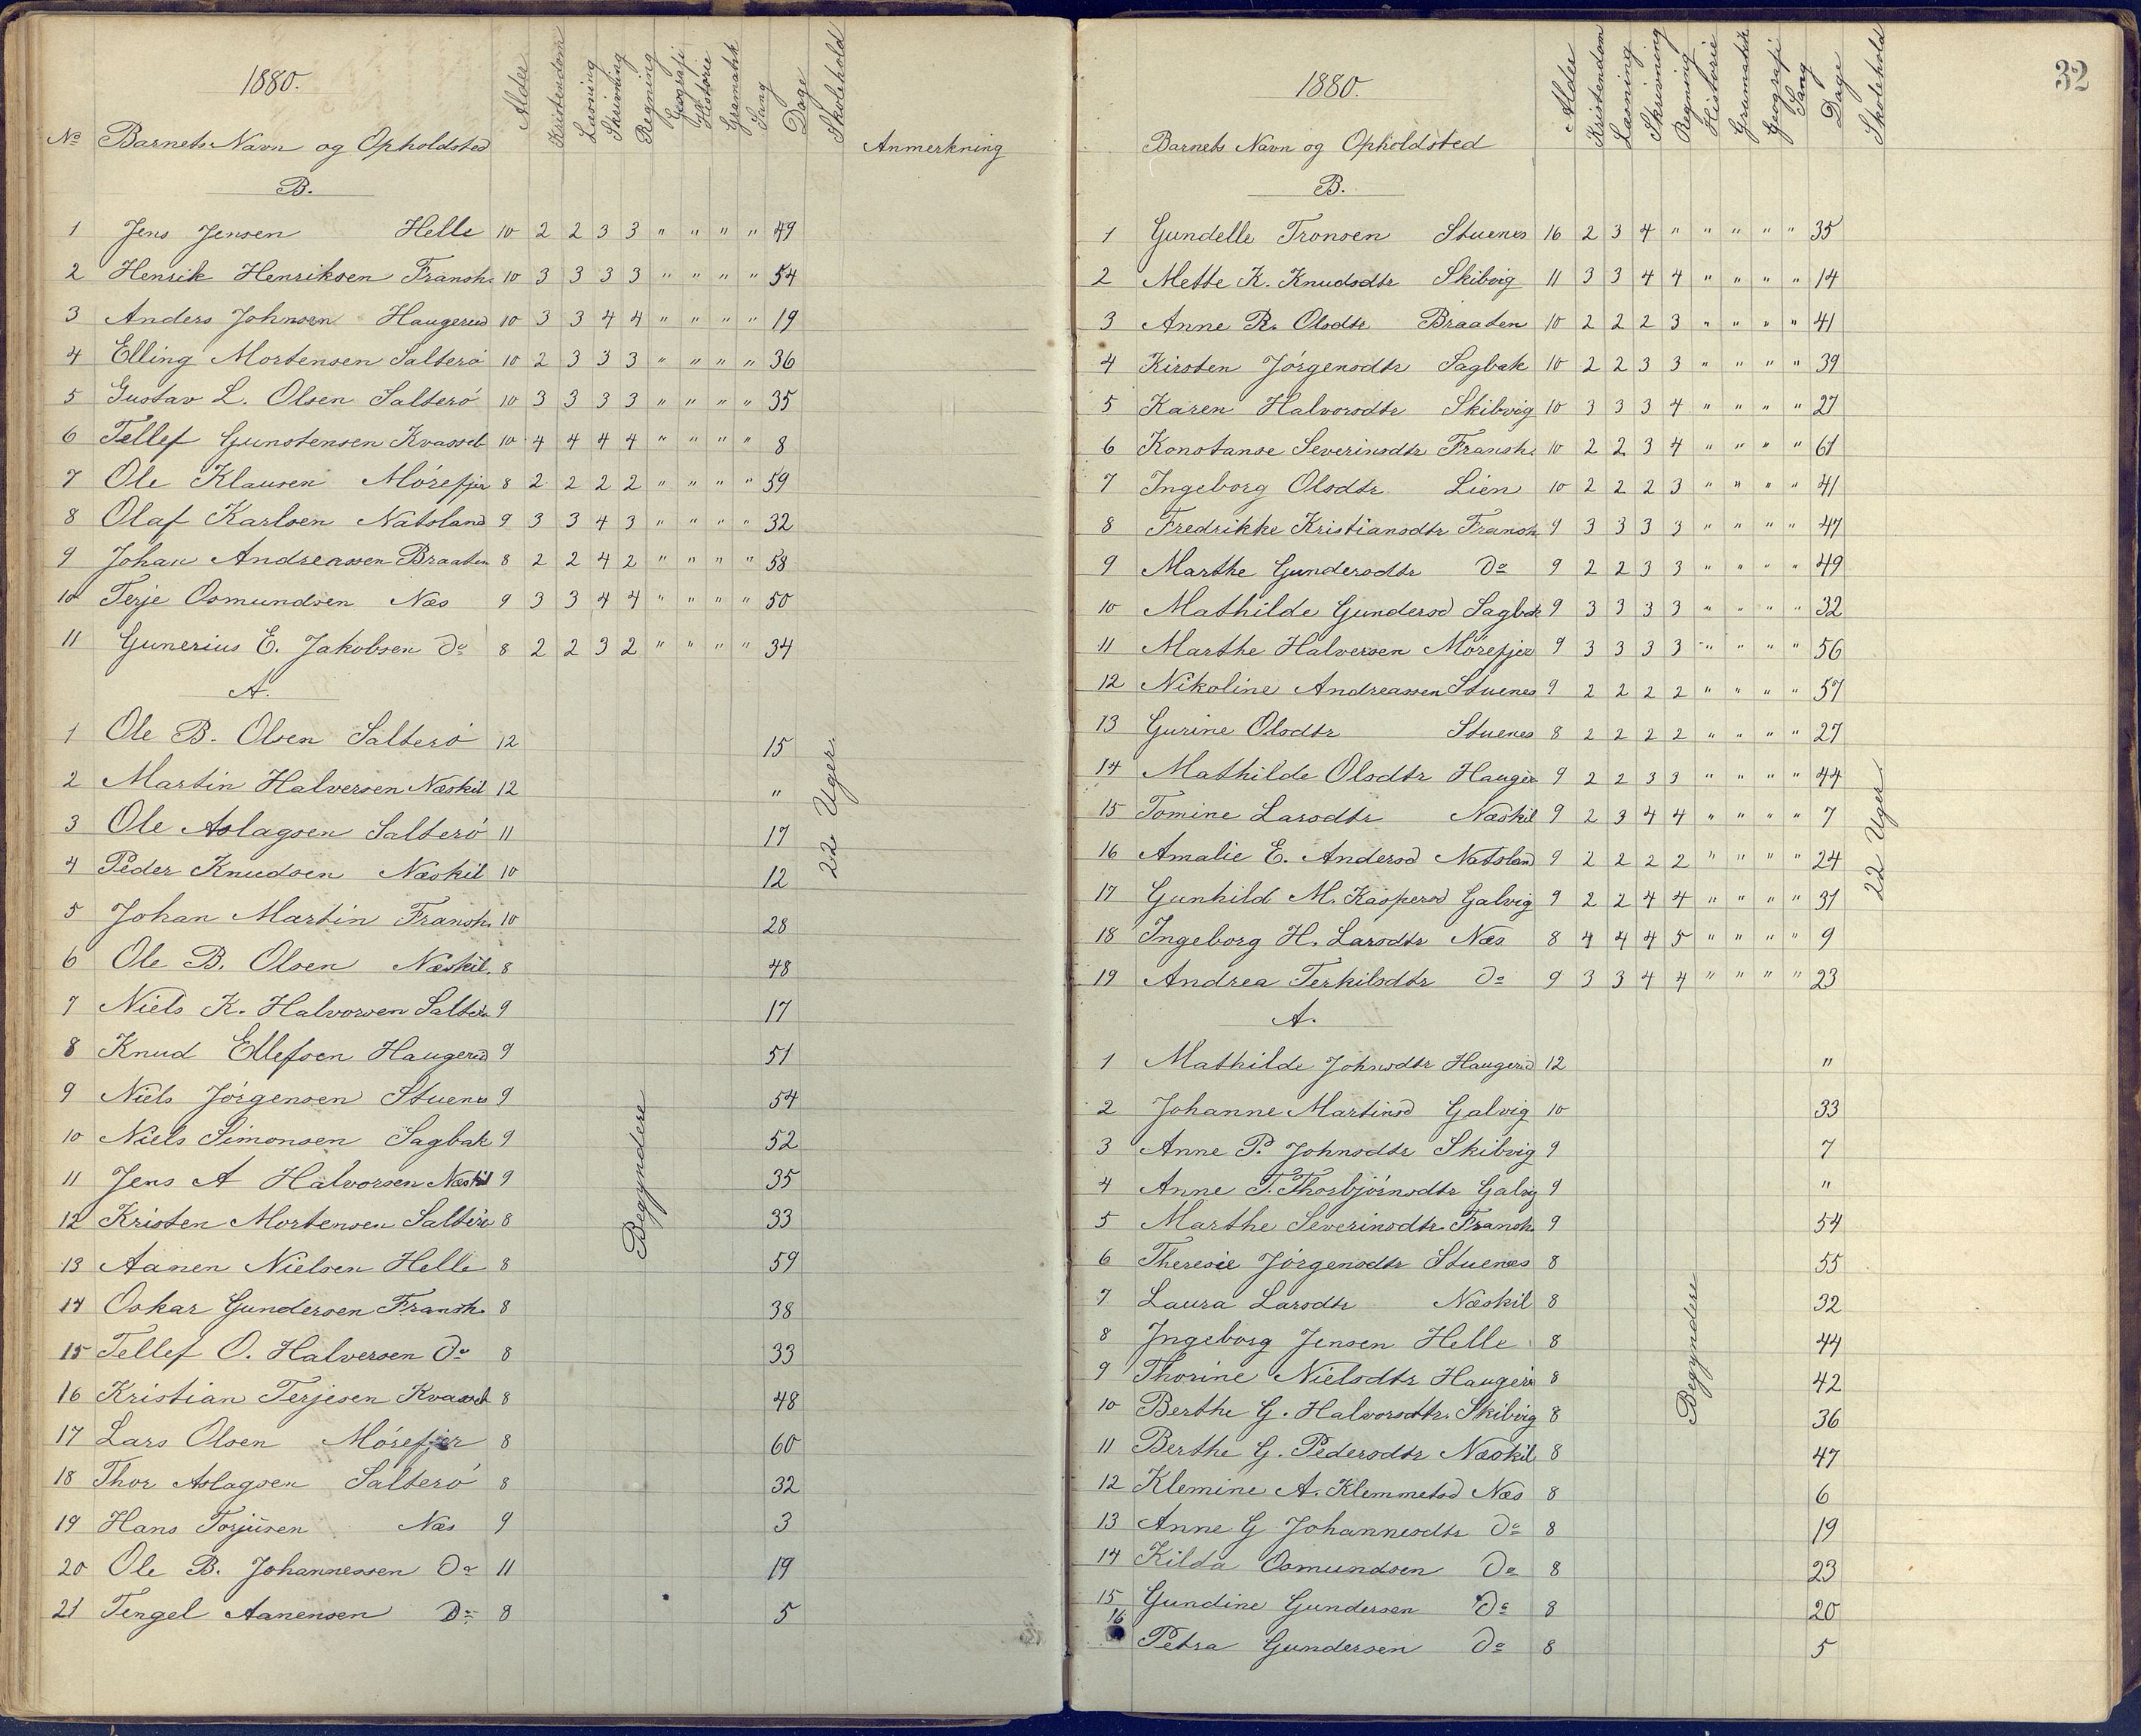 1880.
№ Barnets Navn og Opholdsted Alder Kristendom Læsning Skrivning Regning Geografi Historie Gramatik Sang Dage Skolehold Anmerkning
B.
1 Jens Jensen Helle 10 2 2 3 3 " " " " 49
2 Henrik Henriksen Fransh. 10 3 3 3 3 " " " " 54
3 Anders Johnsen Haugerud 10 3 3 4 4 " " " " 19
4 Elling Mortensen Salterö 10 2 3 3 3 " " " " 36
5 Gustav L. Olsen Salterö 10 3 3 3 3 " " " " 35
6 Tellef Gunstensen Kvassel 10 4 4 4 4 " " " " 8
7 Ole Klausen Mórefjer 8 2 2 2 2 " " " " 59
8 Olaf Karlsen Natsland 9 3 3 4 3 " " " " 32
9 Johan Andreassen Braaten 8 2 2 4 2 " " " " 58
10 Terje Osmundsen Næs 9 3 3 4 4 " " " " 50
11 Gunerius E. Jakobsen Do 8 2 2 3 2 " " " " 34
A.
1 Ole B. Olsen Salteró 12 15
2 Martin Halversen Næskil 12 "
3 Ole Aslagsen Salteró 11 17
4 Peder Knudsen Næskil 10 12
5 Johan Martin Fransh. 10 28
6 Ole B. Olsen Næskil. 8 48
7 Niels K. Halvorsen Salterö 9 17
8 Knud Ellefsen Haugerud 9 51
9 Niels Jórgensen Stuenes 9 54
10 Niels Simonsen Sagbak 9 52
11 Jens A Halvorsen Næskil 9 35
12 Kristen Mortensen Salteró 8 33
13 Aanen Nielsen Helle 8 59
14 Oskar Gundersen Fransh. 8 38
15 Tellef O. Halversen Do 8 33
16 Kristian Terjesen Kvassel 8 48
17 Lars Olsen Mórefjer 8 60
18 Thor Aslagsen Salteró 8 32
19 Hans Torjusen Næs 9 3
20 Ole B. Johannessen Do 11 19
21 Tengel Aanensen Do 8 5
Begyndere
22 Uger.
32
1880.
Barnets Navn og Opholdsted Alder Kristendom Læsning Skrivning Regning Historie Gramatik Geografi Sang Dage Skolehold
B.
1 Gundelle Tronsen Stuenes 16 2 3 4 " " " " " 35
2 Mette K. Knudsdtr Skibvig 11 3 3 4 4 " " " " 14
3 Anne R. Olsdtr Braaten 10 2 2 2 3 " " " " 41
4 Kirsten Jórgensdtr Sagbak 10 2 2 3 3 " " " " 39
5 Karen Halvorsdtr Skibvig 10 3 3 3 4 " " " " 27
6 Konstanse Severinsdtr Fransh. 10 2 2 3 4 " " " " 61
7 Ingeborg Olsdtr Lien 10 2 2 2 3 " " " " 41
8 Fredrikke Kristiansdtr Fransh. 9 3 3 3 3 " " " " 47
9 Marthe Gundersdtr Do 9 2 2 3 3 " " " " 49
10 Mathilde Gundersd Sagbak 9 3 3 3 3 " " " " 32
11 Marthe Halversen Mórefjer 9 3 3 3 3 " " " " 56
12 Nikoline Andreassen Stuenes 9 2 2 2 2 " " " " 57
13 Gurine Olsdtr Stuenes 8 2 2 2 2 " " " " 27
14 Mathilde Olsdtr Hauger 9 2 2 3 3 " " " " 44
15 Tomine Larsdtr Næskil 9 2 3 4 4 " " " " 7
16 Amalie E. Andersd Natsland 9 2 2 2 2 " " " " 24
17 Gunhild M. Kaspersd Galvig 9 2 2 4 4 " " " " 31
18 Ingeborg H. Larsdtr Næs 8 4 4 4 5 " " " " 9
19 Andrea Terkilsdtr Do 9 3 3 4 4 " " " " 23
A.
1 Mathilde Johnsdtr Haugerud 12 "
2 Johanne Martinsd Galvig 10 33
3 Anne P. Johnsdtr Skibvig 9 7
4 Anne T. Thorbjórnsdtr Galvig 9 "
5 Marthe Severinsdtr Fransh. 9 54
6 Theresie Jórgensdtr Stuenes 8 55
7 Laura Larsdtr Næskil 8 32
8 Ingeborg Jensen Helle 8 44
9 Thorine Nielsdtr Haugerud 8 42
10 Berthe G. Halvorsdtr. Skibvig 8 36
11 Berthe G. Pedersdtr Næskil 8 47
12 Klemine A. Klemmetsd Næs 8 6
13 Anne G Johannesdtr Do 8 19
14 Kilda Osmundsen Do 8 23
15 Gundine Gundersen Do 8 20
16 Petra Gundersen Do 8 5
Begyndere
22 Uger.